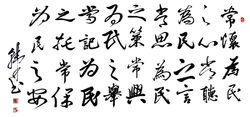 常懷為民
之心常聽
為民之言
常思為民
之策常興
為民之舉
常記為民
之托常保
為民之安